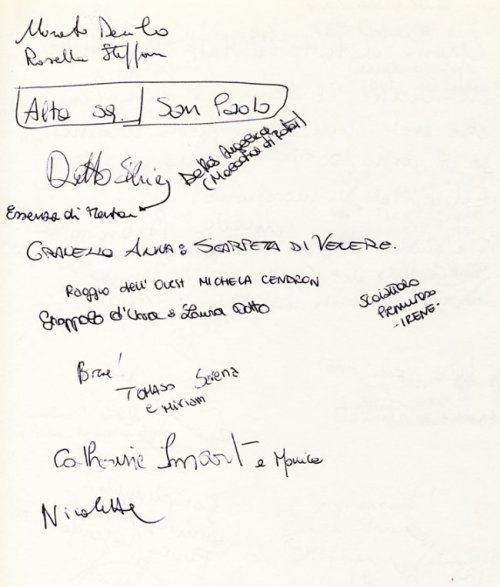 Moreto Danilo
Rosella Steffan
Alta sq. San Paolo
Dotto Silvia
Della Francesca
(Maestra di Ratat)
Essenza di
GRANELLO ANNA: SCARPETTA DI VENERE.
Raggio dell' Ovest MICHELA CENDRON
Grappolo d'Uva: Laura Dotto
SCOIATTOLO
PREMUROSO
-IRENE-
Brave!
TOMASO Serena
e Miriam
Catherine Smart e Monica
Nicoletta